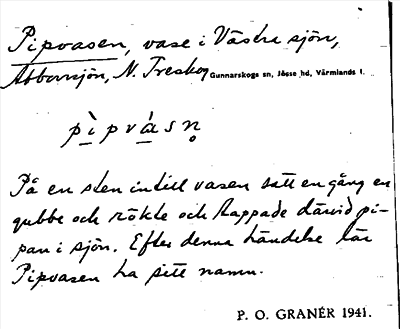 Pipvasen, vase i Västra sjön,
Abborrsjön, N. Treskog Gunnarskogs sn, Jösse hd, Värmlands l.
pı̀pvásn̥
På en sten intill vasen satt en gång en
gubbe och rökte och tappade därvid pi-
pan i sjön. Efter denna händelse lär
Pipvasen ha fått namn.
P. O. GRANÉR 1941.